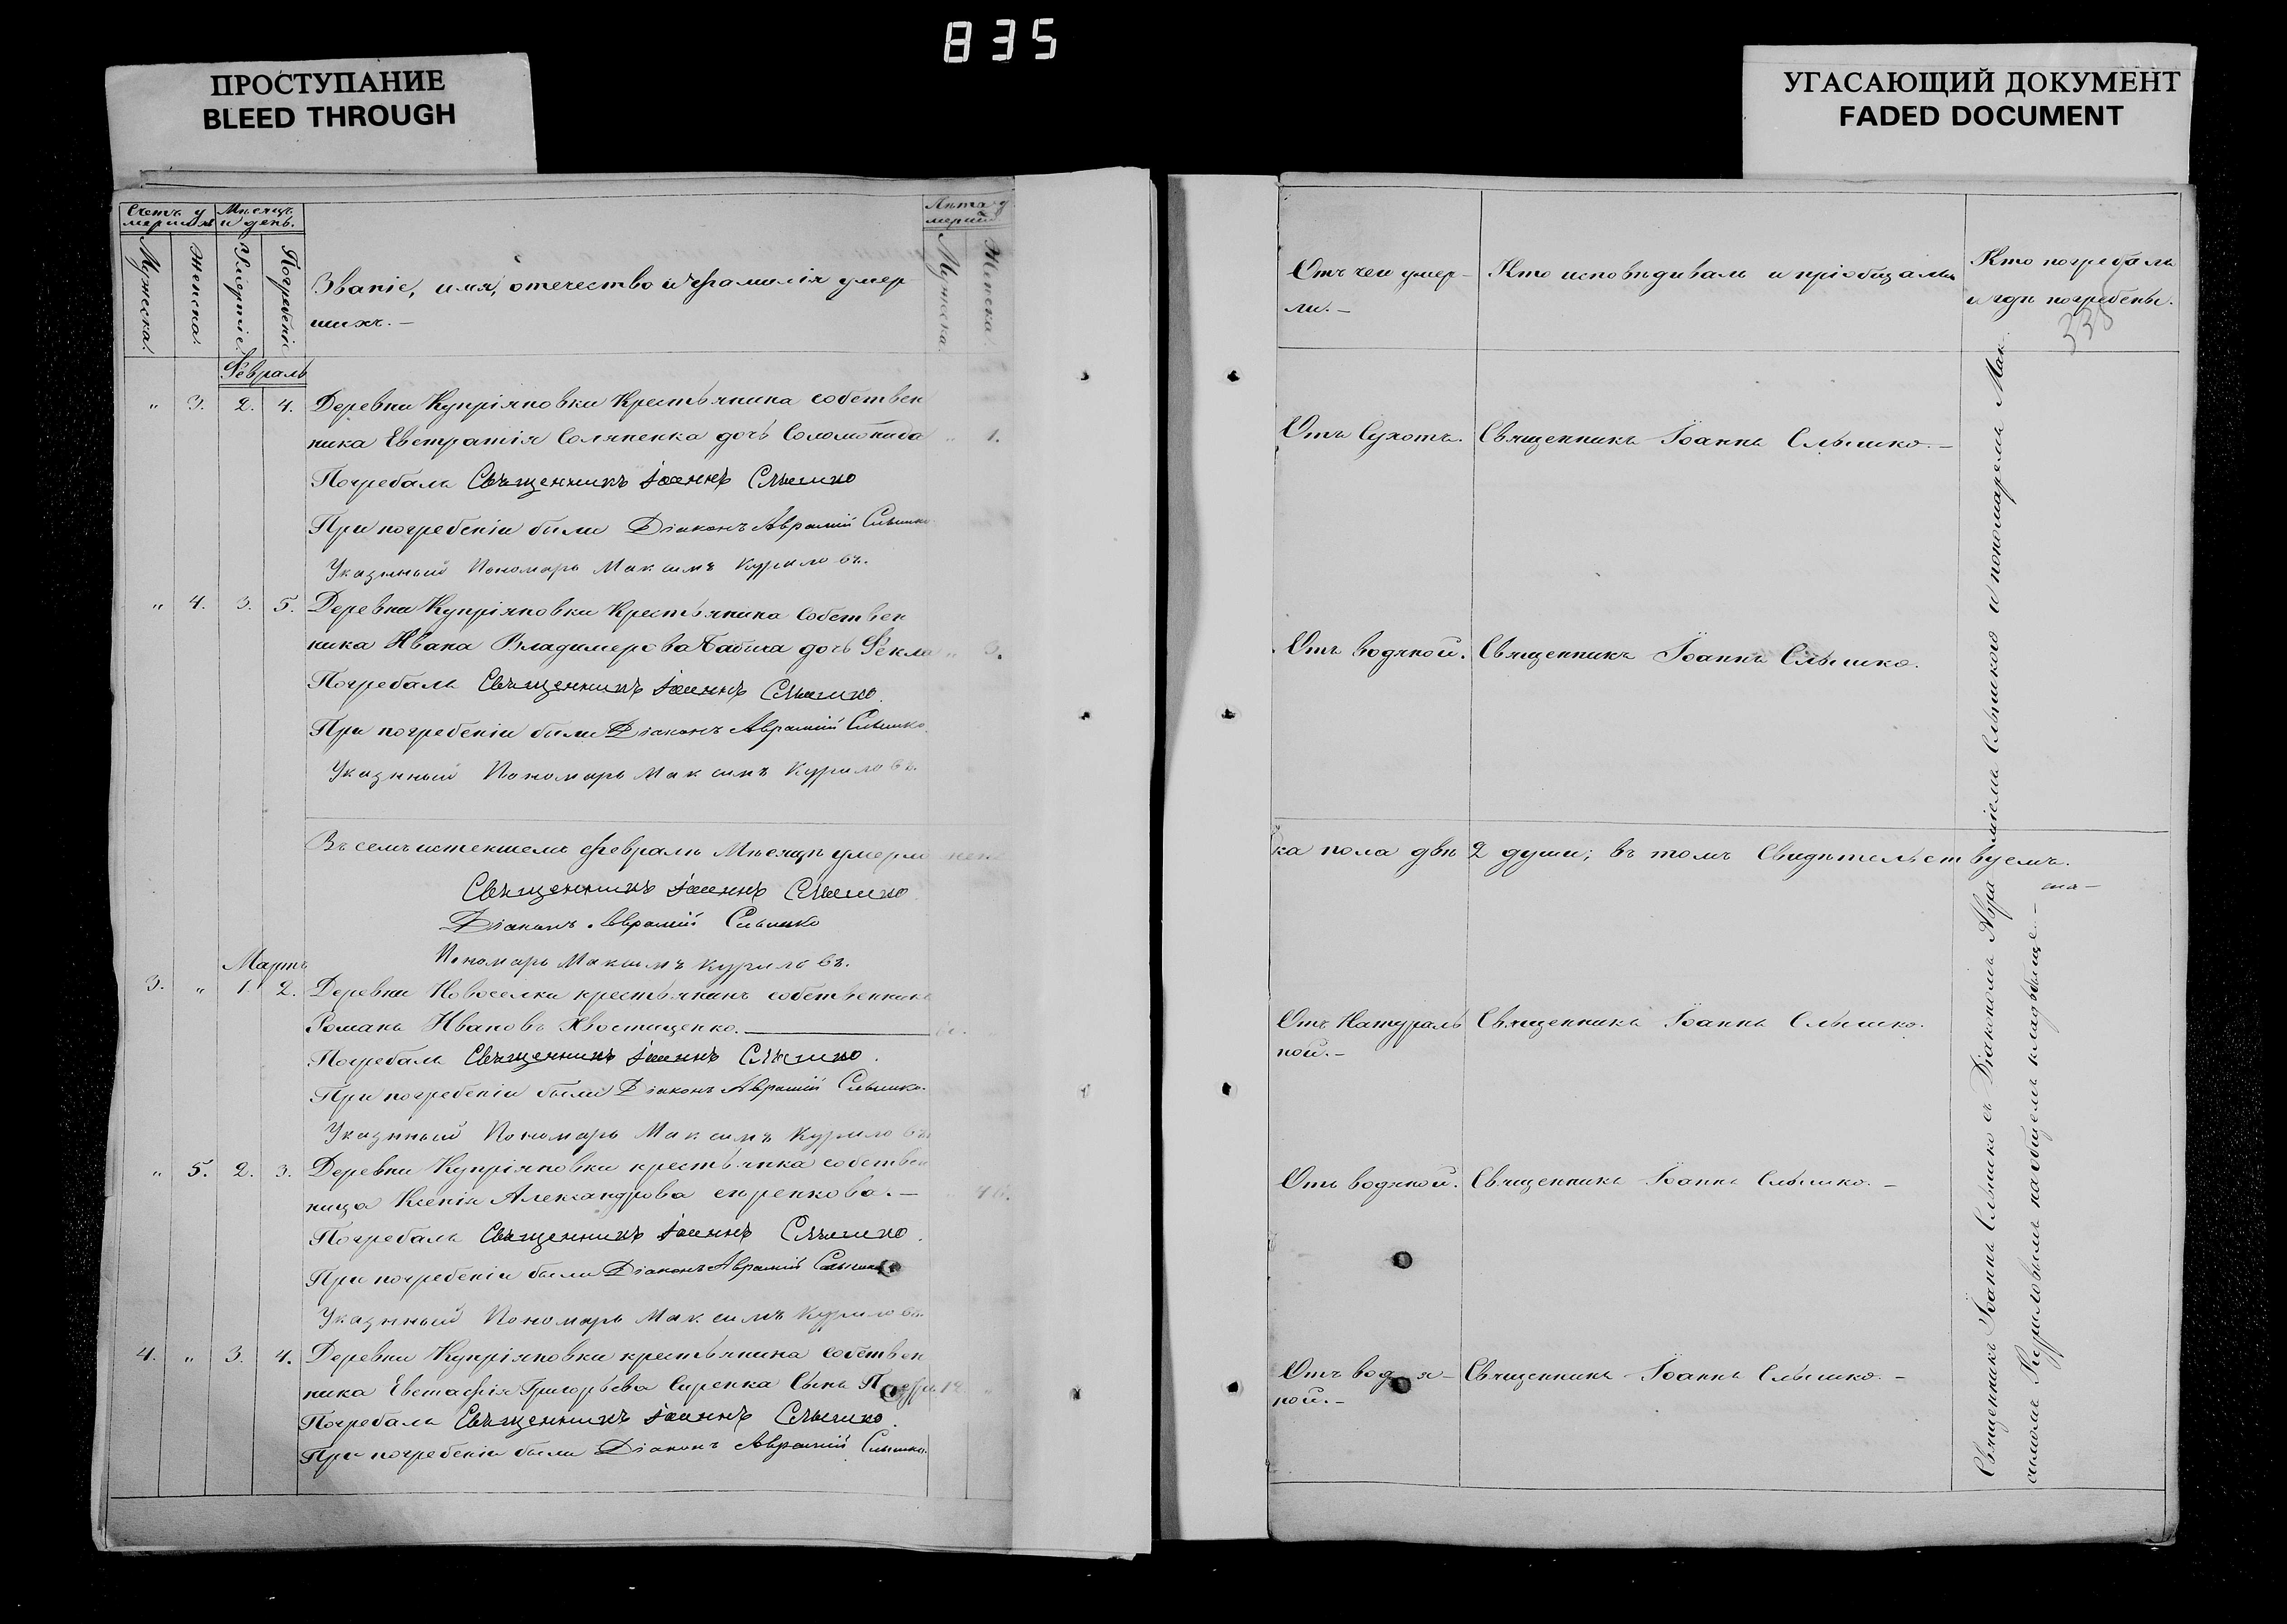 835
ПРОСТУПАНИЕ
BLEED THROUGH
УГАСАЮЩИЙ ДОКУМЕНТ
FADED DOCUMENT
Счетъ у
мершихъ
Мѣсяцъ
и день.
Лѣта у
мерши
Мужеска.
Женска.
Смертіе.
Погребеніе
Званіе, имя, отечество и фамилія умер
шихъ.—
Мужеска.
Женска.
Февраль
" 3. 2. 4. Деревни Купріяновки Крестьянина собствен
ника Евстратія Соляненка дочь Соломонида " 1.
Погребалъ Священникъ Іоаннъ Слышко
При погребеніи были Діаконъ Аврамій Слышко
Указнный Пономарь Максимъ Куриловъ.
" 4. 3. 5. Деревни Купріяновки Крестьянина Собствен
ника Ивана Владимерова Бабича дочь Фекла " 3.
Погребалъ Священникъ Іоаннъ Слышко.
При погребеніи были Діаконъ Аврамій Слышко.
Указнный Пономарь Максимъ Куриловъ.
Въ семъ истекшемъ февралѣ Мѣсяцѣ умерло женс
Священникъ Іоаннъ Слышко.
Діаконъ Аврамій Слышко
Пономарь Максимъ Куриловъ.
Мартъ
3. " 1. 2. Деревни Новоселки крестьянинъ собственникъ
Романъ Ивановъ Хвостищенко.
Погребалъ Священникъ Іоаннъ Слышко.
При погребеніи были Діаконъ Аврамій Слышко.
Указнный Пономарь Максимъ Куриловъ
" 5. 2. 3. Деревни Купріяновки крестьянка собствен
ница Ксенія Александрова сиренкова.—
Погребалъ Священникъ Іоаннъ Слышко.
При погребеніи были Діаконъ Аврамій Слышко
Указнный Пономарь Максимъ Куриловъ.
4. " 3. 4. Деревни Купріяновки крестьянина собствен
ника Евстафія Григорьева Сиренка Сынъ 12
Погребалъ Священникъ Іоаннъ Слышко.
При погребеніи были Діаконъ Аврамій Слышко.
Отъ чего умер-
ли.—
Кто исповѣдивалъ и пріобщалъ
Кто погребалъ
и гдѣ погребены.
335
Отъ Сухотъ. Священникъ Іоаннъ Слышко.—
Отъ водяной. Священникъ Іоаннъ Слышко.
ка пола двѣ 2 души; въ томъ Свидѣтельствуемъ.
Отъ Натураль
ной.—
Священникъ Іоаннъ Слышко.
Отъ водяной. Священникъ Іоаннъ Слышко.—
Отъ водя-
ной.—
Священникъ Іоаннъ Слышко.—
Священникъ Іоаннъ Слышко съ Діакономъ Авраміемъ Слышкою и пономаремъ Мак
симомъ Куриловымъ на общемъ кладбыще.—